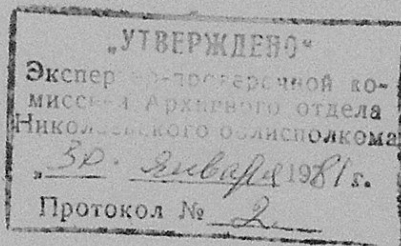 „УТВЕРЖДЕНО“
Экспертно-проверочной ко-
миссией Архивного отдела
Николаевского облисполкома
„30. января 1981 г.
Протокол № 2